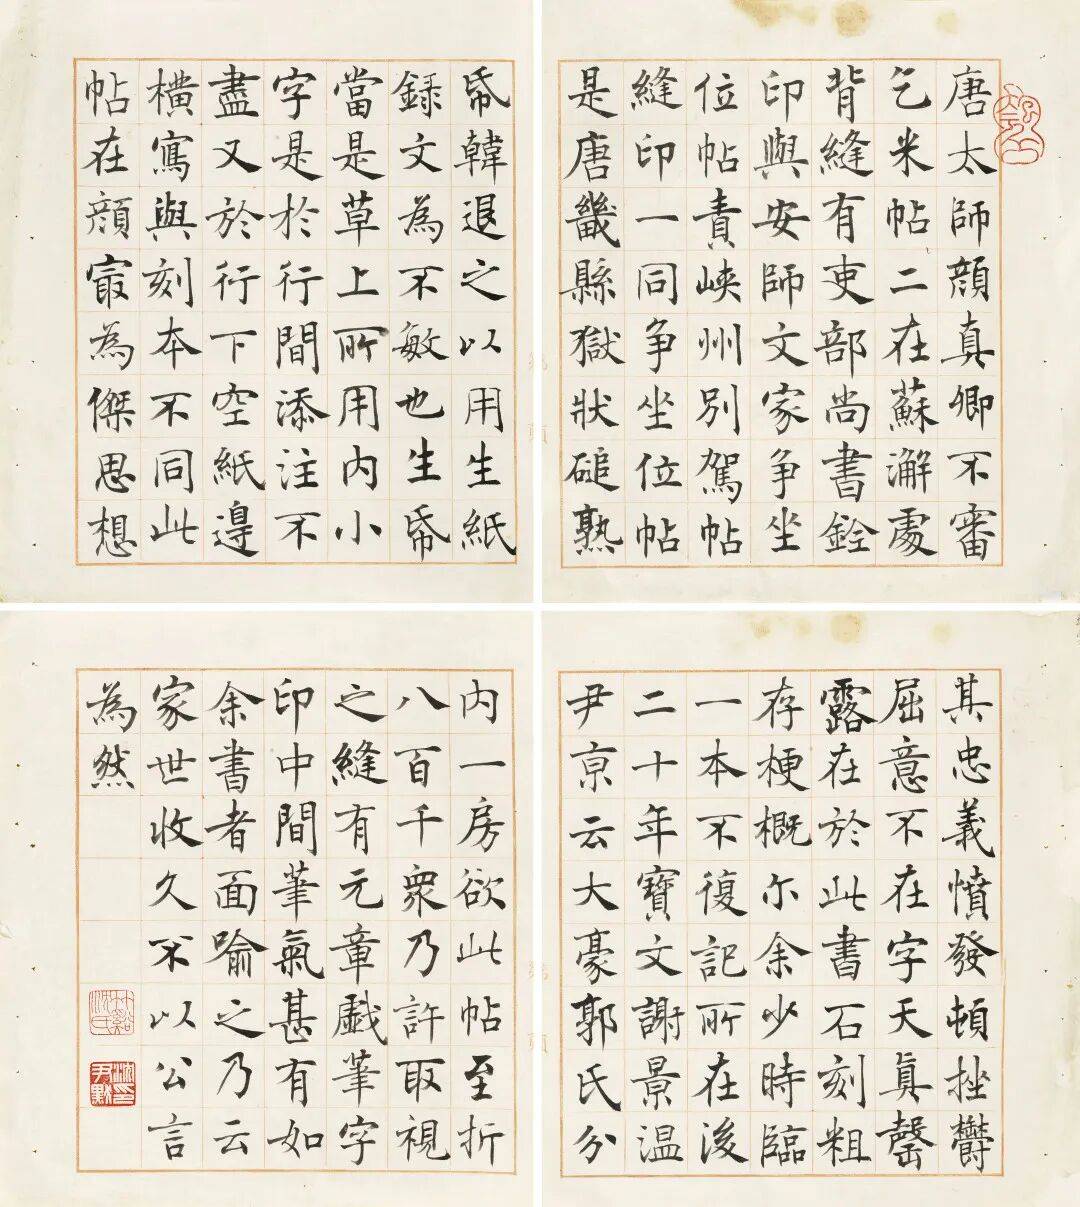 唐太師顔真卿不審
乞米帖二在蘇澥處
背縫有吏部尚書銓
印與安師文家争坐
位帖責峽州別駕帖
縫印一同争坐位帖
是唐畿縣獄狀磓熟
帋韓退之以用生紙
録文為不敏也生帋
當是草上所用内小
字是於行間添注不
盡又於行下空紙邊
横寫與刻本不同此
帖在顔㝡為傑思想
其忠義憤發頓挫欝
屈意不在字天真罄
露在於此書石刻粗
存梗概尓余少時臨
一本不復記所在後
二十年寶文謝景温
尹亰云大豪郭氏分
内一房欲此帖至折
八百千衆乃許取視
之縫有元章戲筆字
印中間筆氣甚有如
余書者面喻之乃云
家世收久不以公言
為然
竹谿沈氏
沈尹默印